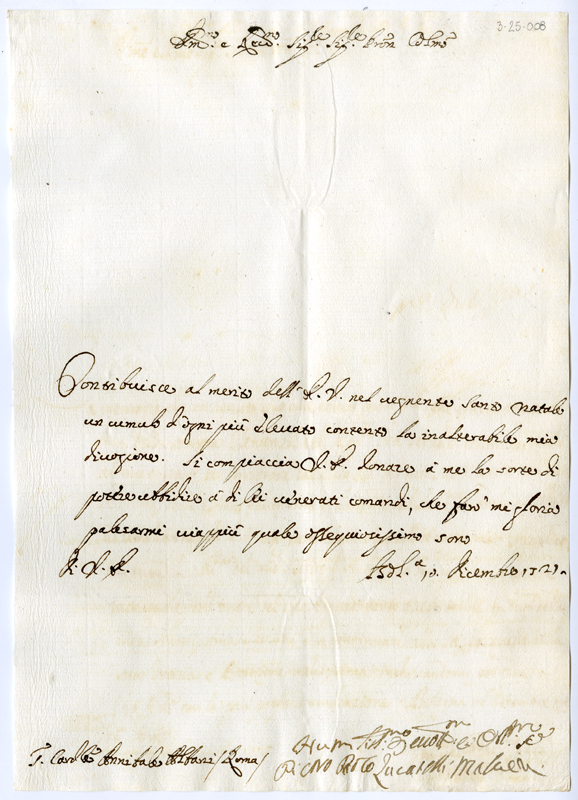 3-25-008
Em.mo e Rev.mo Sig.re Sig.re Pron Col.mo
Contribuisce al merito dell' E. V. nel vegnente Santo Natale
un cumulo d'ogni più ellevato contento la inalterabile mia
divozione. Si compiaccia V. E. donare à me la sorte di
potere ubbidire à di lei venerati comandi, che farò mi gloria
palesarmi viappiù quale ossequiosissimo sono
Di V. E.
Dicembre 1721.
S. Card.le Annibale Albani /Roma/
Hum.mo Devot.mo et Obl.mo Se.re
Pietro Lucatelli